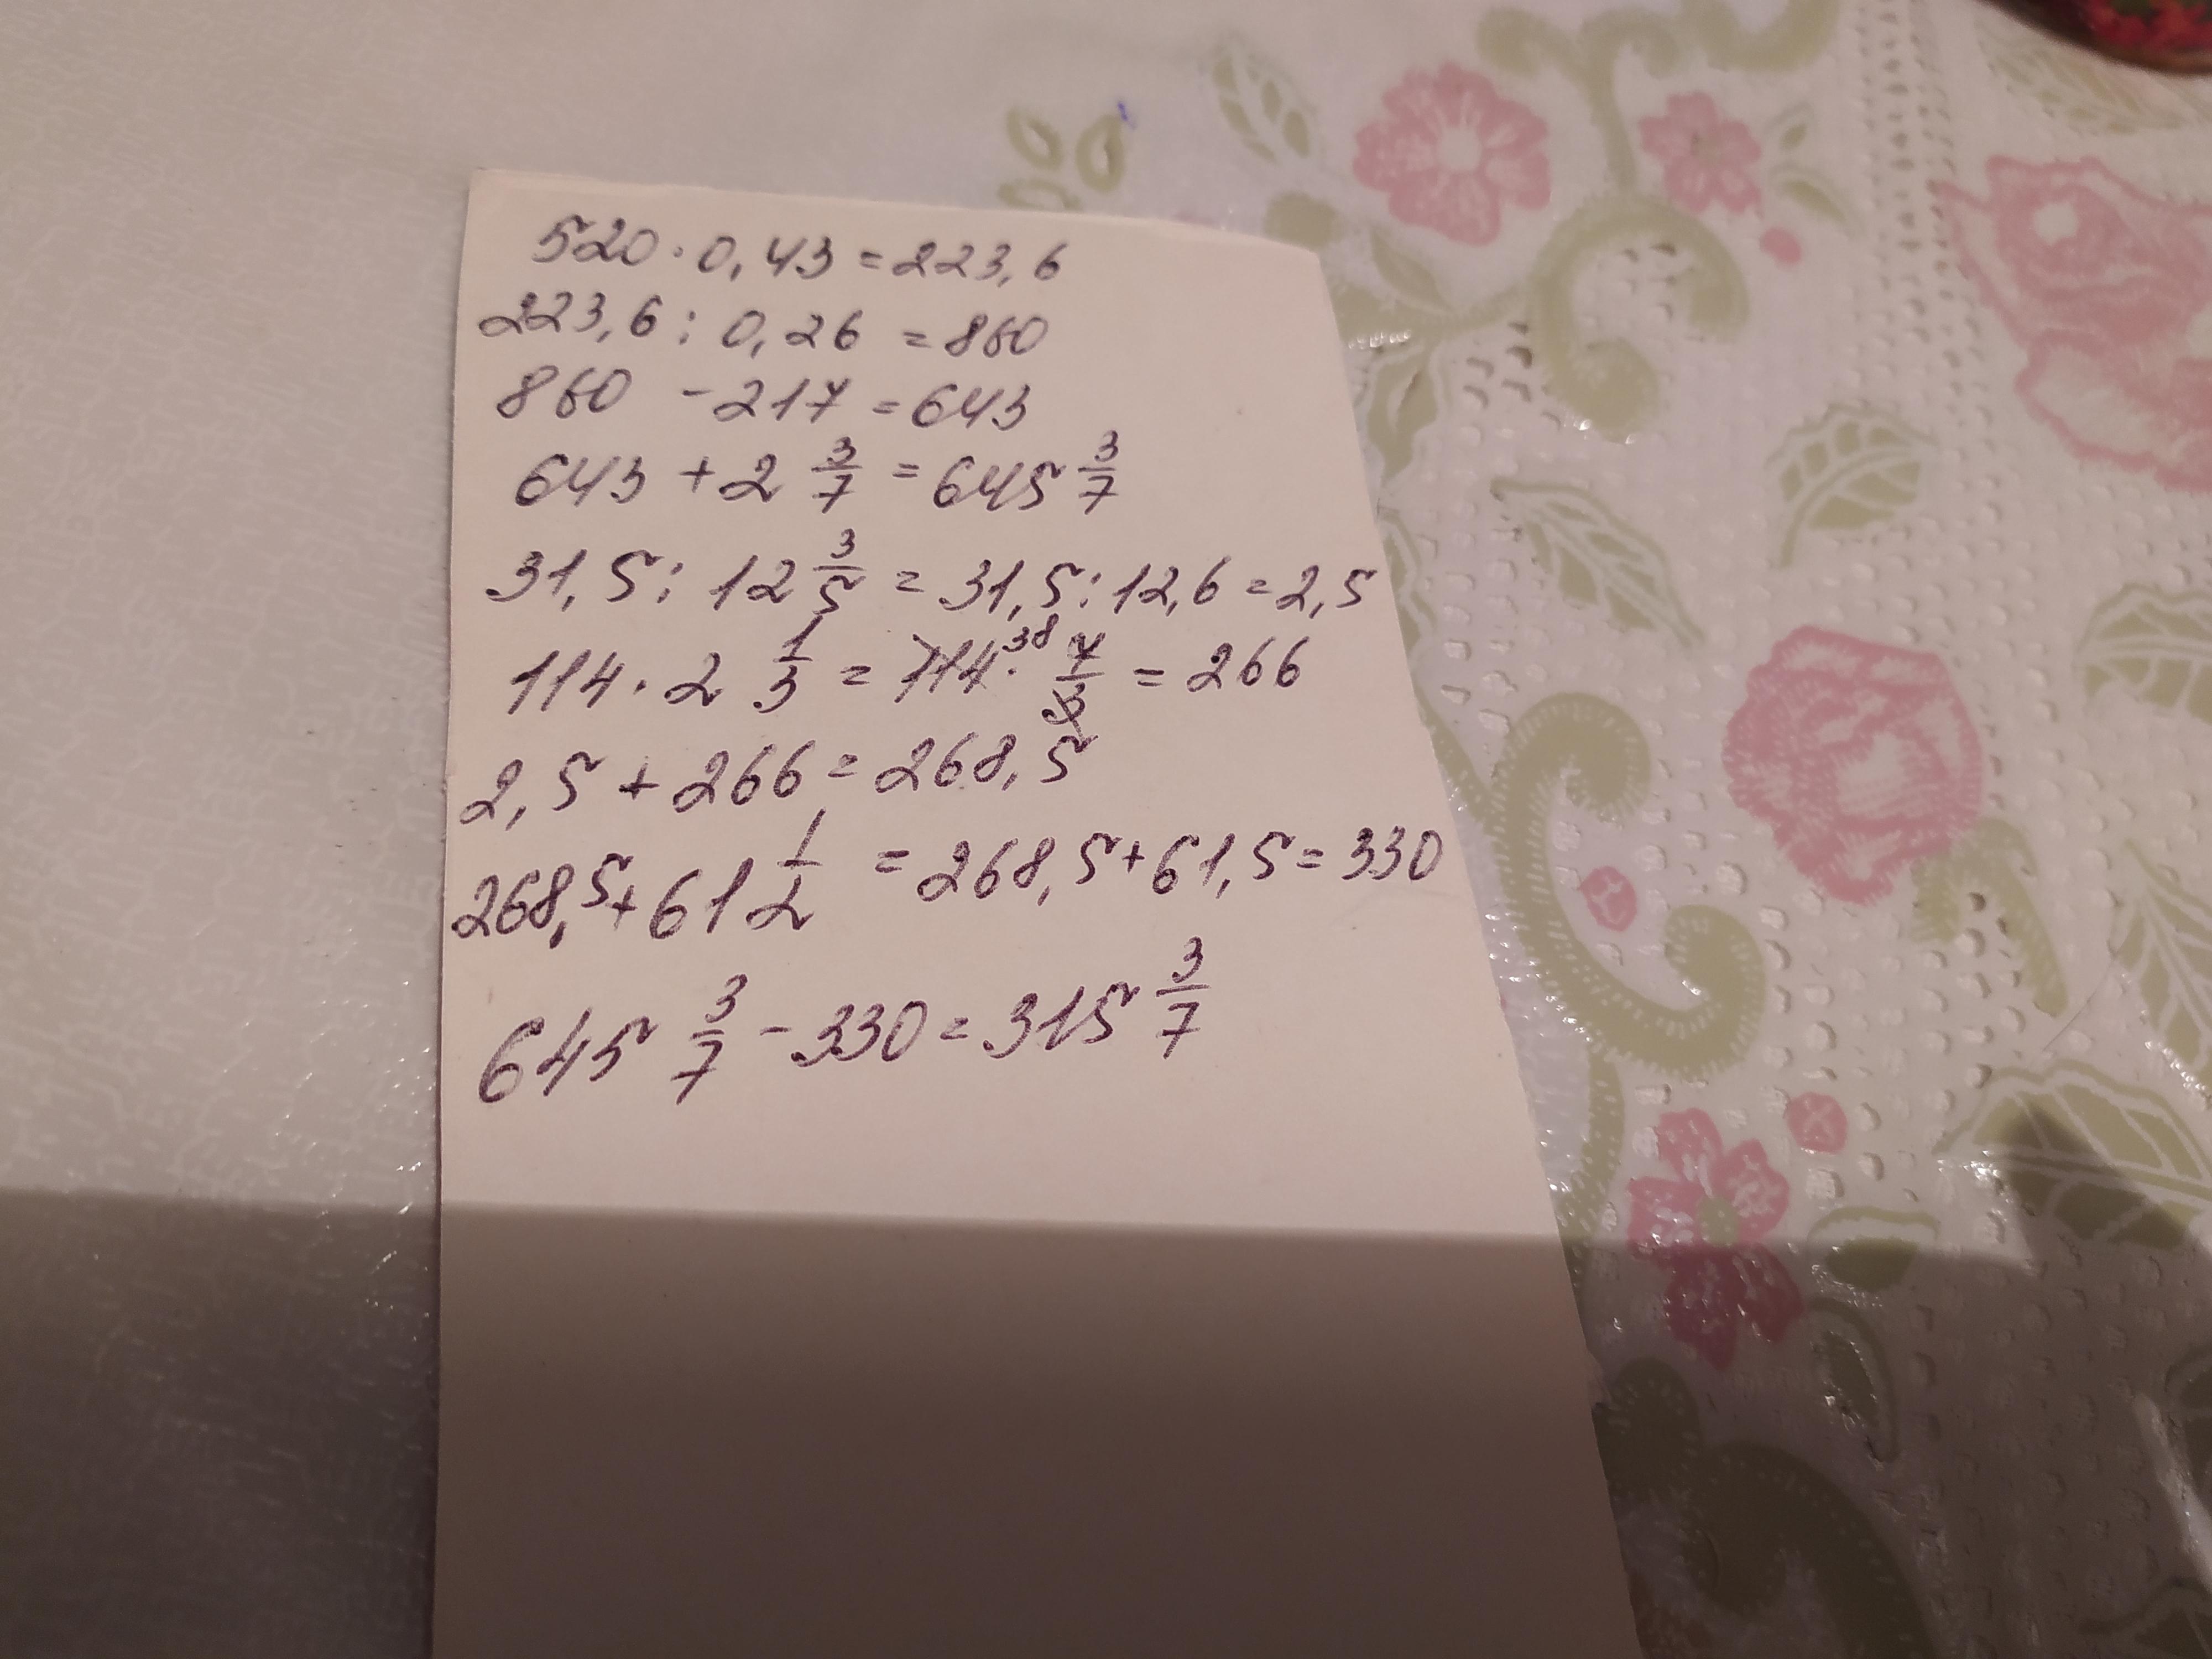 520 · 0,43 = 223,6
223,6 : 0,26 = 860
860 - 217 = 643
643 + 2 3/7 = 645 3/7
31,5 : 12 3/5 = 31,5 : 12,6 = 2,5
114 · 2 1/3 = 114 38 · 7/3 = 266
2,5 + 266 = 268,5
268,5 + 61 1/2 = 268,5 + 61,5 = 330
645 3/7 - 330 = 315 3/7